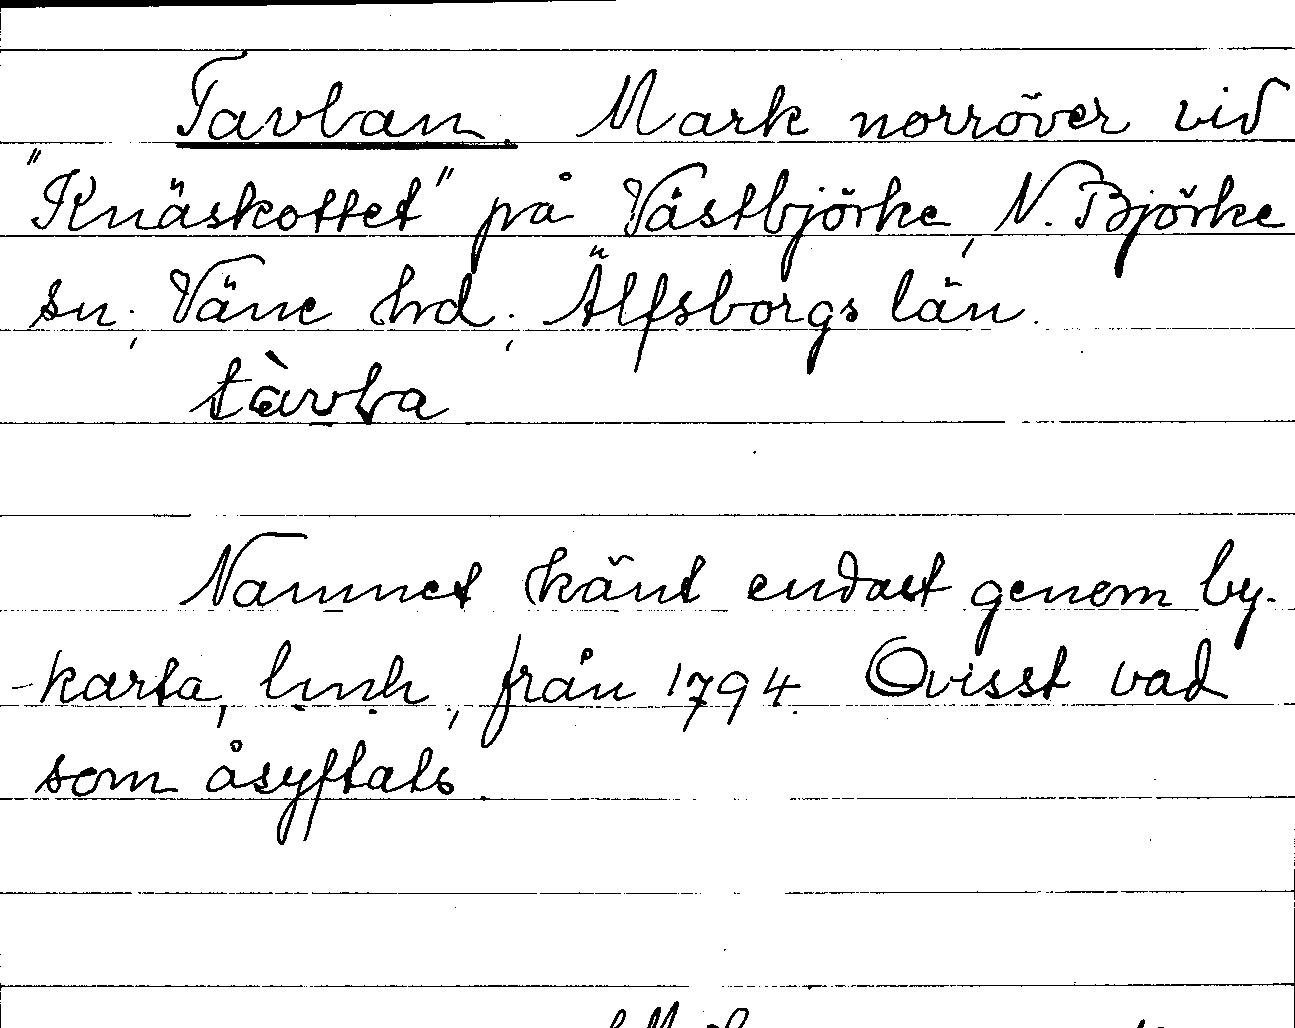 Tavlan. Mark norröver vid
"Knäskottet" på Västbjörke, N. Björke
sn; Väne hd; Älfsborgs län.
tàvla
Namnet känt endast genom by-
-karta, från 1794. Ovisst vad
som åsyftats.